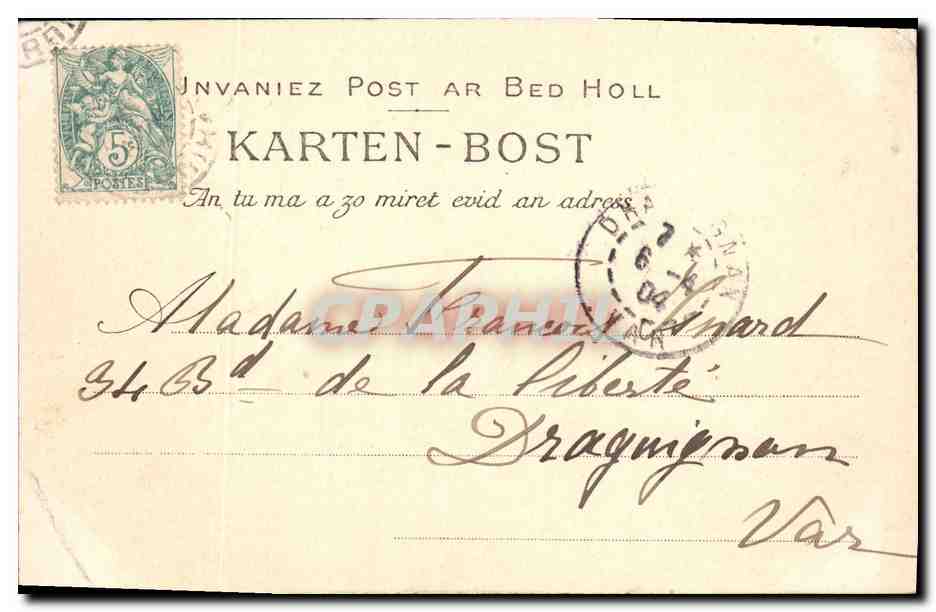 UNVANIEZ POST AR BED HOLL
KARTEN-BOST
An tu ma a zo miret evid an adress
5c
POSTES
DRAGUIGNAN
7
6 - 4
04
VAR
CPAPHIL
Madame François
34 Bd de la liberté
Draguignan
Var